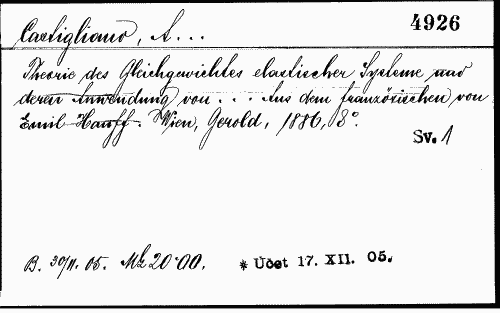 Castigliano, A...
4926
Theorie des Gleichgewichtes elastischer Systeme und
deren Anwendung von... Aus dem französischen von
Emil Hauff. Wien, Gerold, 1886, 8°.
Sv. 1
B. 30/11. 05. Mk 20·00.
* Účet 17. XII. 05.